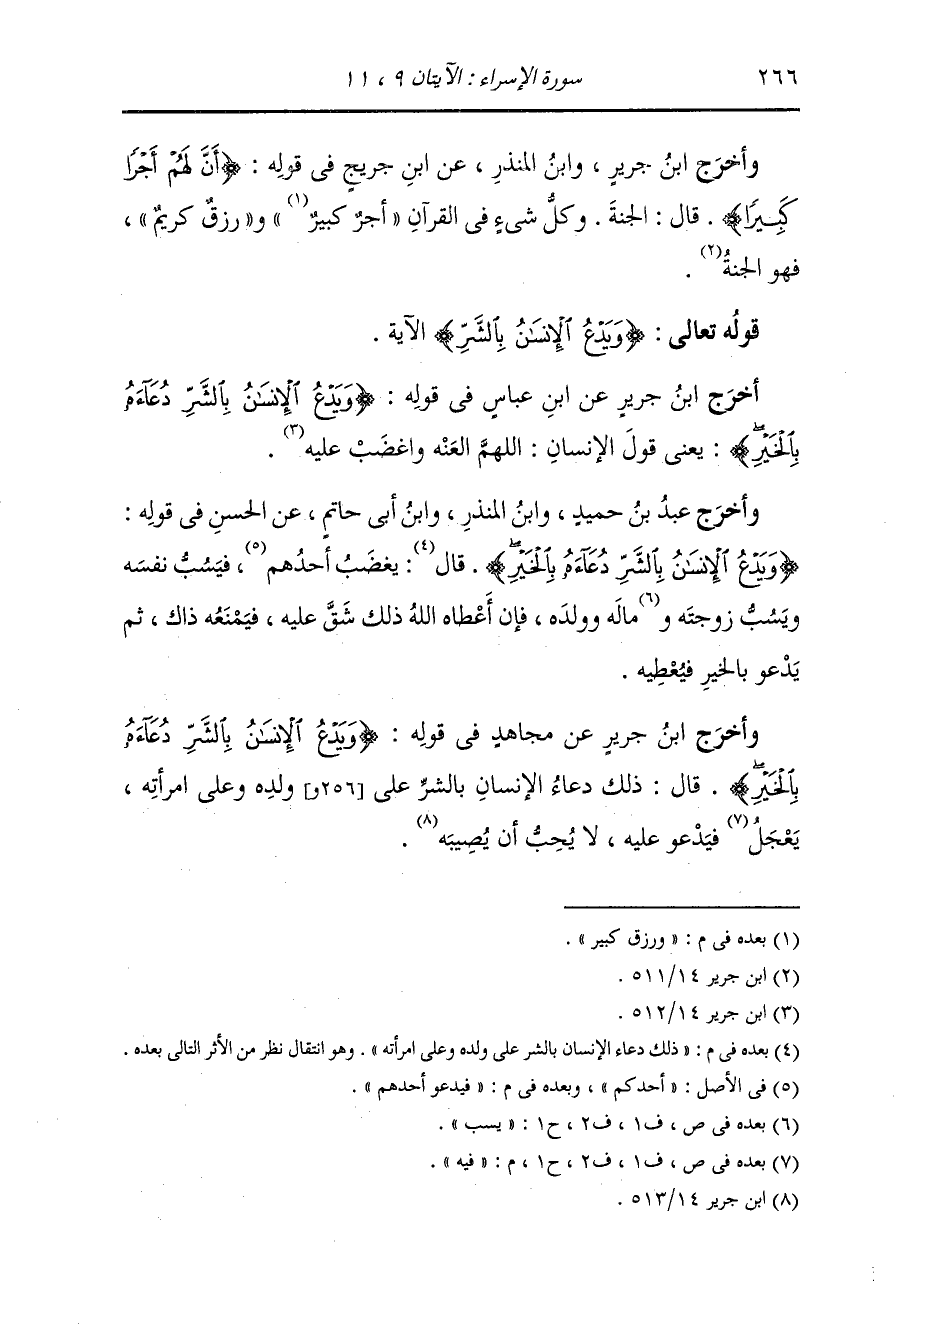 ٢٦٦ سورة الإسراء : الآيتان ٩ ، ١١
وأخرَج ابنُ جريرٍ ، وابنُ المنذرِ ، عن ابنِ جريجٍ فى قولِه : ﴿أَنَّ لَهُمْ أَجْرًا
كَبِيرًا﴾ . قال : الجنةَ . وكلُّ شىءٍ فى القرآنِ « أجرٌ كبيرٌ(١) » و« رزقٌ كريمٌ » ،
فهو الجنةُ(٢) .
قولُه تعالى : ﴿وَيَدْعُ ٱلْإِنسَٰنُ بِٱلشَّرِّ﴾ الآية .
أخرَج ابنُ جريرٍ عن ابنِ عباسٍ فى قولِه : ﴿وَيَدْعُ ٱلْإِنسَٰنُ بِٱلشَّرِّ دُعَآءَهُۥ
بِٱلْخَيْرِۖ﴾ : يعنى قولَ الإنسانِ : اللهمَّ العَنْه واغضَبْ عليه(٣) .
وأخرَج عبدُ بنُ حميدٍ ، وابنُ المنذرِ ، وابنُ أبى حاتمٍ ، عن الحسنِ فى قولِه :
﴿وَيَدْعُ ٱلْإِنسَٰنُ بِٱلشَّرِّ دُعَآءَهُۥ بِٱلْخَيْرِۖ﴾ . قال(٤) : يغضَبُ أحدُهم(٥) ، فيَسُبُّ نفسَه
ويَسُبُّ زوجتَه و(٦)مالَه وولدَه ، فإن أَعْطاه اللهُ ذلك شَقَّ عليه ، فيَمْنَعُه ذاك ، ثم
يَدْعو بالخيرِ فيُعْطِيه .
وأخرَج ابنُ جريرٍ عن مجاهدٍ فى قولِه : ﴿وَيَدْعُ ٱلْإِنسَٰنُ بِٱلشَّرِّ دُعَآءَهُۥ
بِٱلْخَيْرِۖ﴾ . قال : ذلك دعاءُ الإنسانِ بالشرِّ على [٢٥٦و] ولدِه وعلى امرأتِه ،
يَعْجَلُ(٧) فيَدْعو عليه ، لا يُحِبُّ أن يُصِيبَه(٨) .
(١) بعده فى م : « ورزق كبير » .
(٢) ابن جرير ٥١١/١٤ .
(٣) ابن جرير ٥١٢/١٤ .
(٤) بعده فى م : « ذلك دعاء الإنسان بالشر على ولده وعلى امرأته » . وهو انتقال نظر من الأثر التالى بعده .
(٥) فى الأصل : « أحدكم » ، وبعده فى م : « فيدعو أحدهم » .
(٦) بعده فى ص ، ف١ ، ف٢ ، ح١ : « يسب » .
(٧) بعده فى ص ، ف١ ، ف٢ ، ح١ ، م : « فيه » .
(٨) ابن جرير ٥١٣/١٤ .